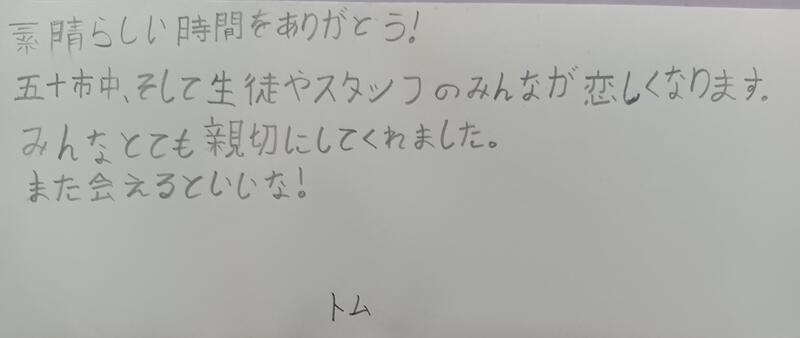 素晴らしい時間をありがとう!
五十市中、そして生徒やスタッフのみんなが恋しくなります。
みんなとても親切にしてくれました。
また会えるといいな!
トム